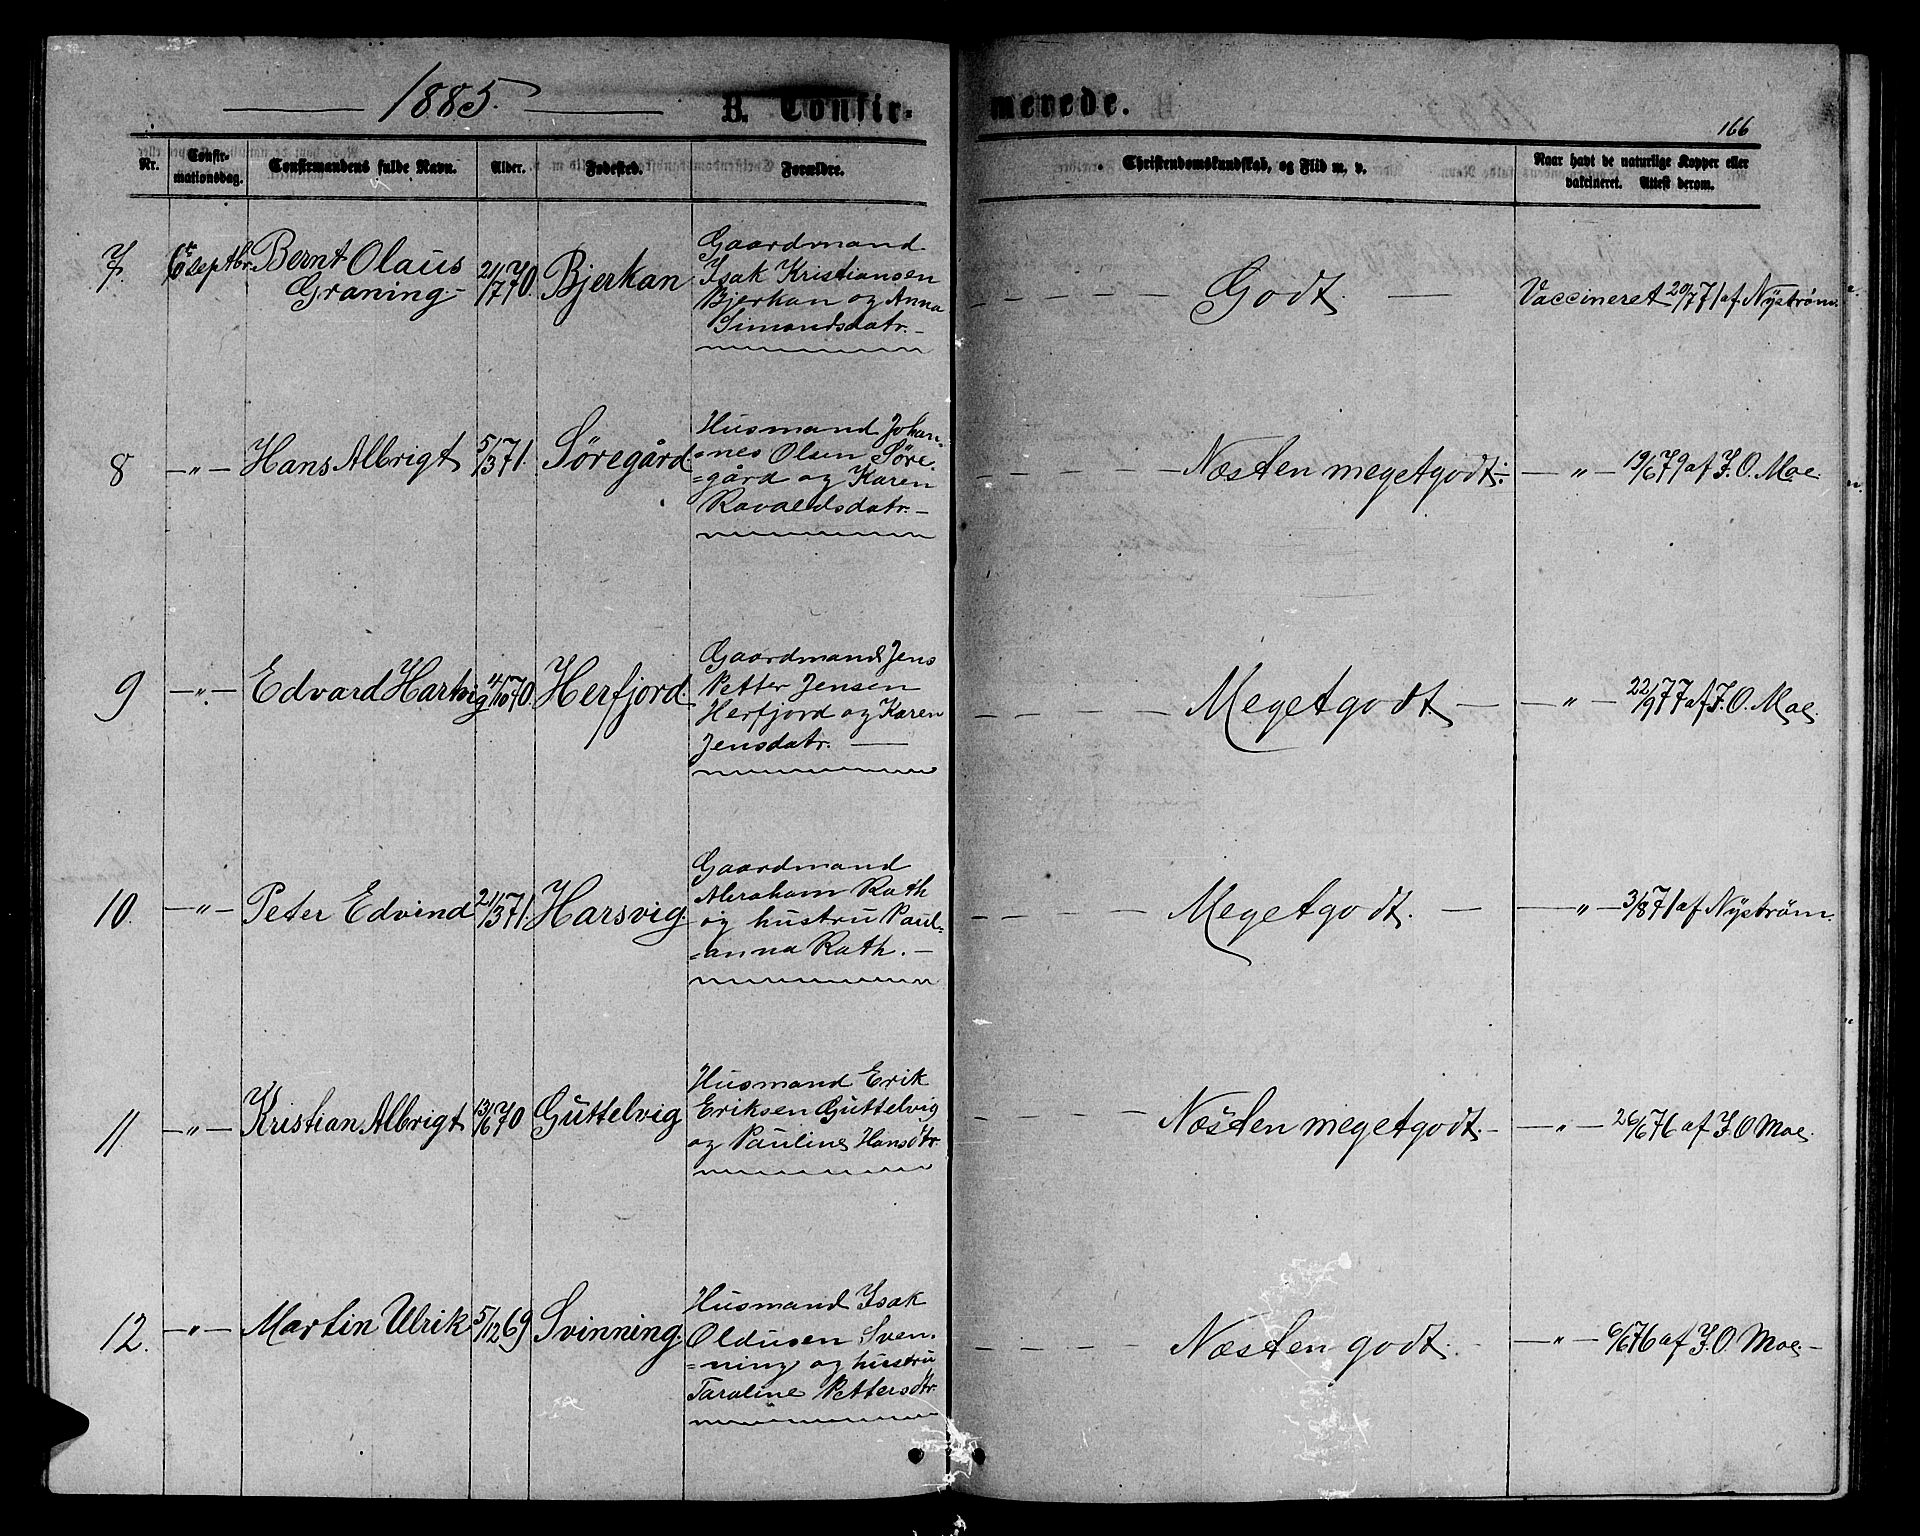 1885.
B. Confir-
merede.
166
Nr.
Confir-
mationsdag.
Confirmandens fulde Navn.
Alder.
Fødested.
Forældre.
Christendomskundskab, og Flid m. v.
Naar havt de naturlige Kopper eller
vakcineret. Attest derom.
7. 6 Septbr. Bernt Olaus
Graning
21/7 70. Bjerkan
Gaardmand
Isak Kristiansen
Bjerkan og Anna
Simonsdatr.
Godt.
Vaccineret 20/7 71 af Nÿstrøm.
8 —„— Hans Albrigt 5/3 71. Söregård.
Husmand Johan-
=nes Olsen Söre-
=gård og Karen
Ravaldsdatr.
Næsten megetgodt.
—„— 19/6 79 af J. O. Moe.
9 —„— Edvard Hartvig 4/10 70. Herfjord.
Gaardmand Jens
Petter Jensen
Herfjord og Karen
Jensdatr.
Megetgodt.
—„— 22/9 77 af J. O. Moe.
10. —„— Peter Edvind 21/3 71. Harsvig.
Gaardmand
Abraham Rath
og hustru Paul-
=anna Rath.
Megetgodt.
—„— 3/8 71 af Nÿstrøm.
11. —„— Kristian Albrigt 13/6 70 Guttelvig
Husmand Erik
Eriksen Guttelvig
og Pauline Hansdtr
Næsten megetgodt.
—„— 26/6 76 af J O Moe.
12. —„— Martin Ulrik 5/12 69 Svinning.
Husmand Isak
Oldusen Sven-
=ning og hustru
Taraline Pettersdtr.
Næsten godt.
—„— 6/6 76 af J. O Moe.